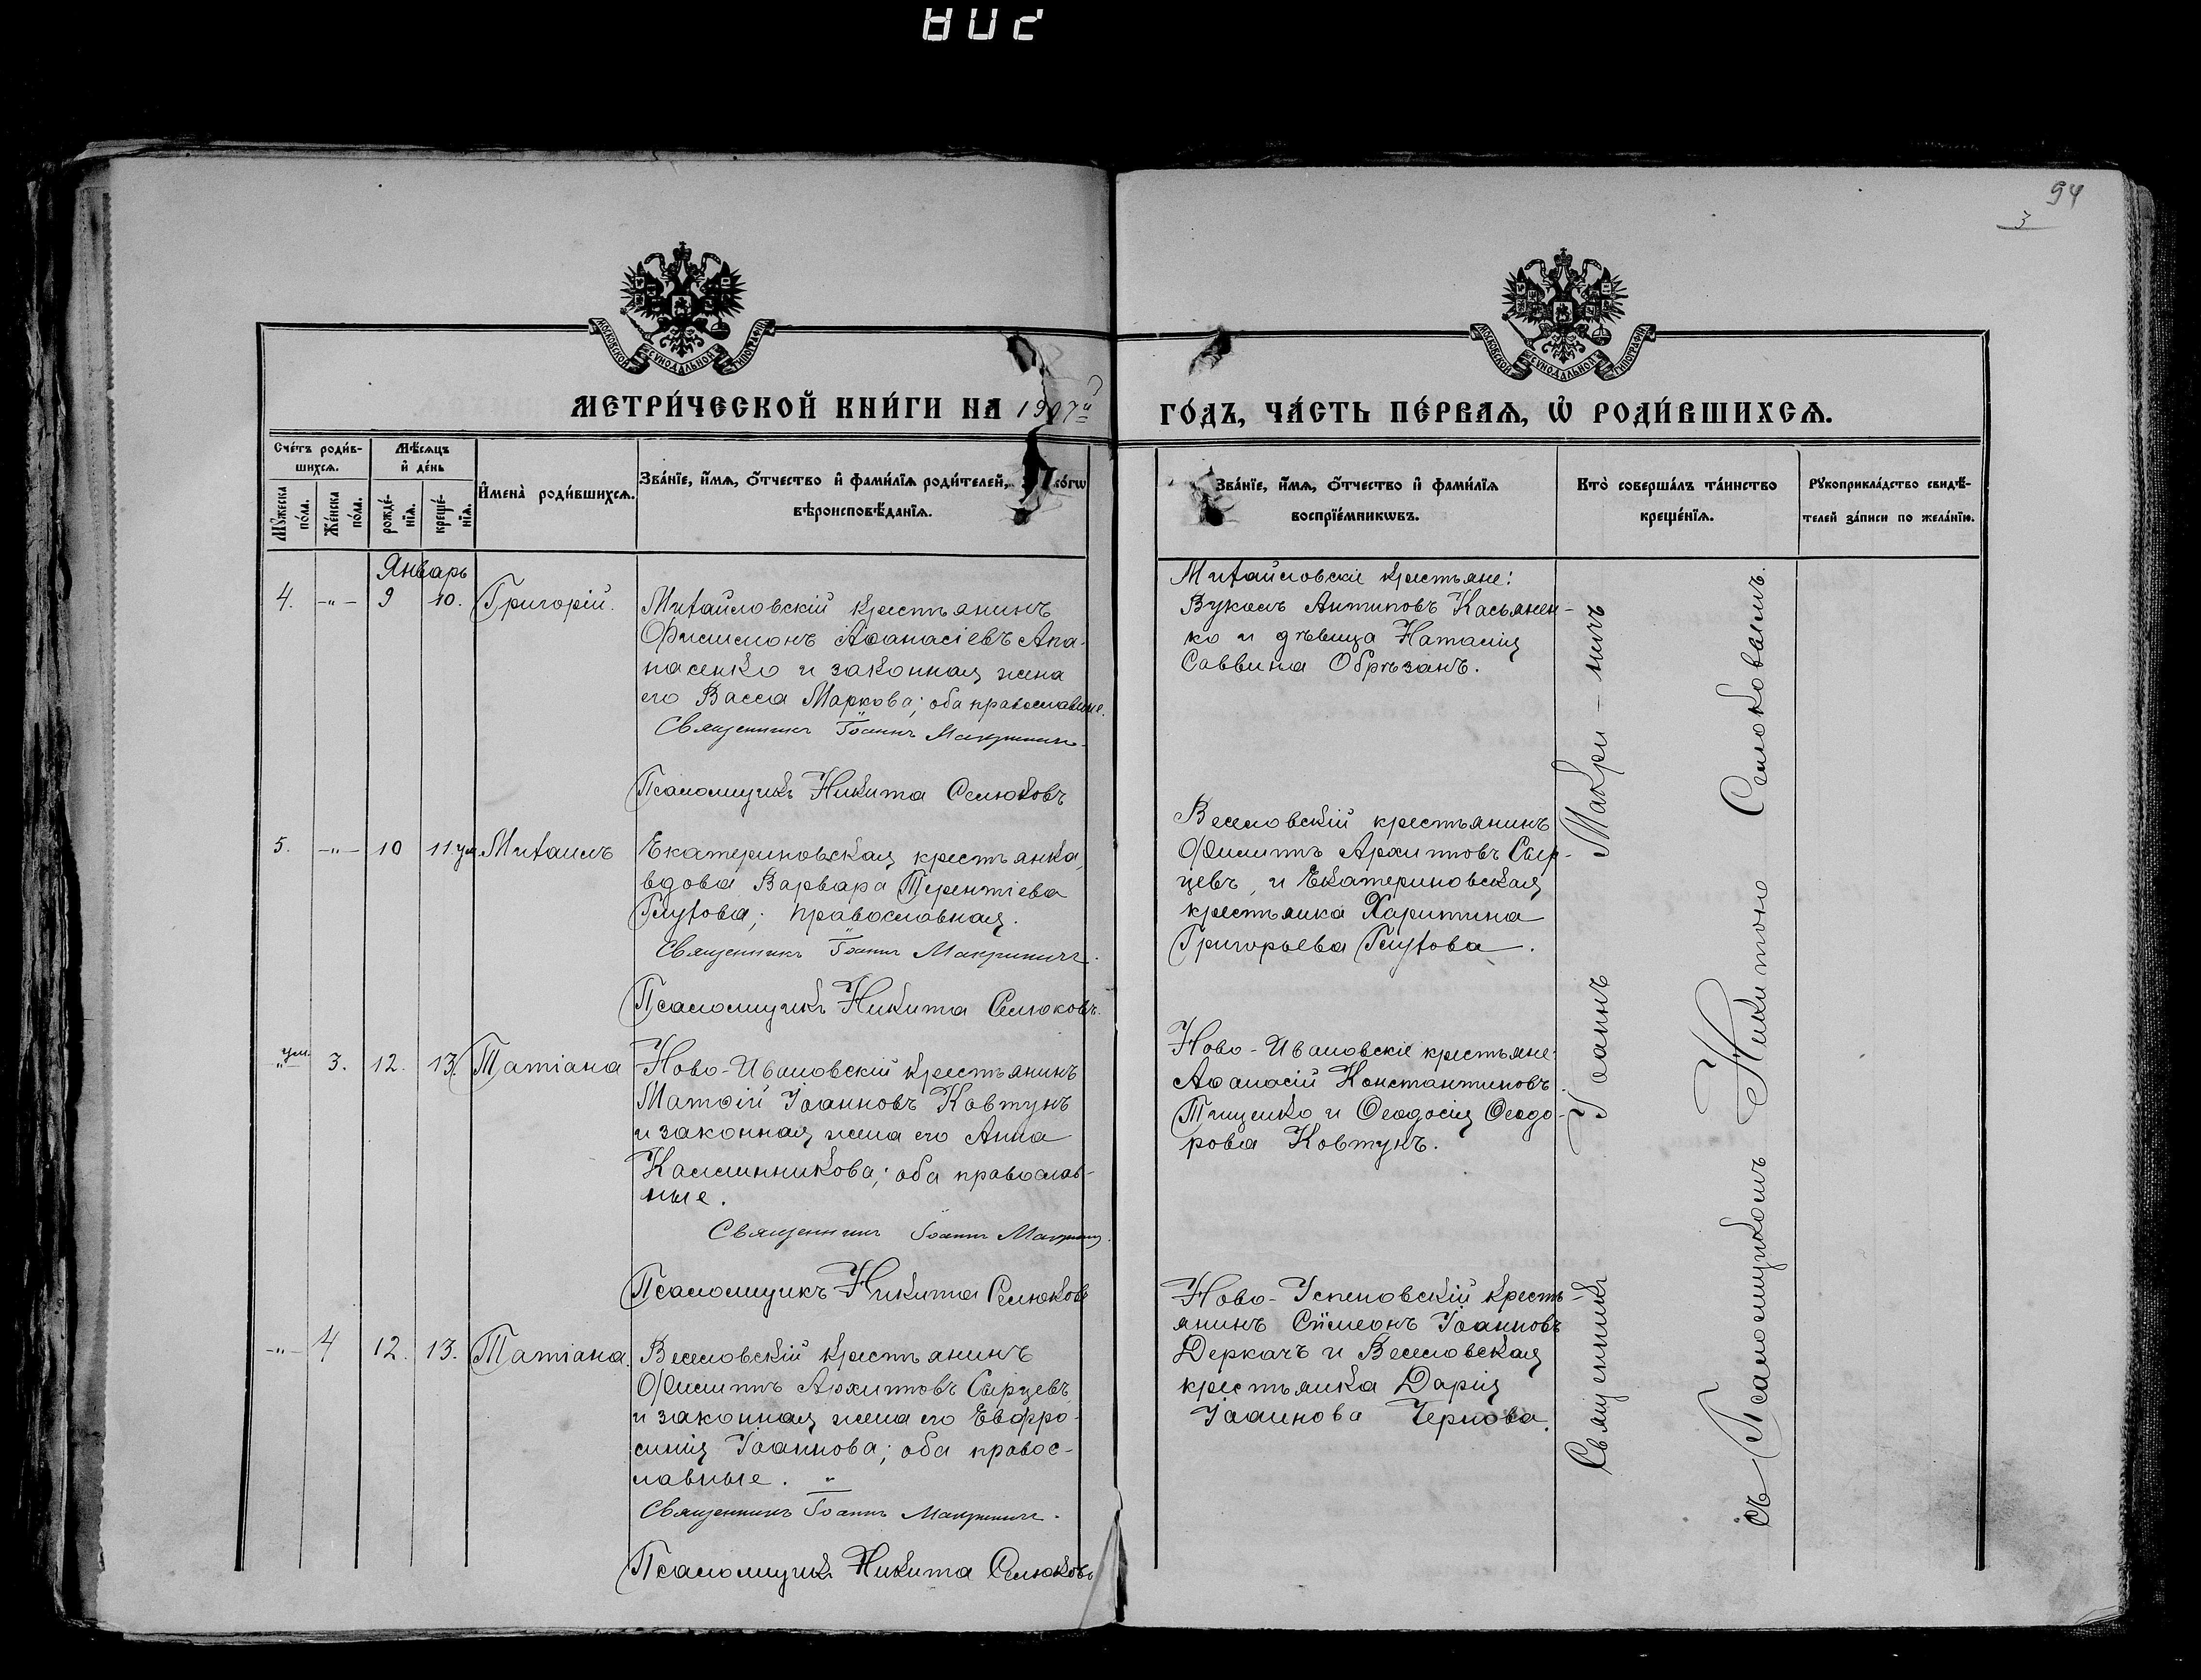 802
94
3
МОСКОВСКОЙ СѴНОДАЛЬНОЙ ТИПОГРАФІИ
МОСКОВСКОЙ СѴНОДАЛЬНОЙ ТИПОГРАФІИ
МЕТРИ́ЧЕСКОЙ КНИ́ГИ НА 1907й ГО́ДЪ, ЧА́СТЬ ПЕ́РВАѦ, Ѡ҆ РОДИ́ВШИХСѦ.
Сче́тъ роди́в-
шихсѧ.
Мꙋ́жеска по́ла.
Же́нска по́ла.
Мѣ́сѧцъ
и҆ де́нь
рожде́-
нїѧ.
креще́-
нїѧ.
И҆мена̀ роди́вшихсѧ.
Зва́нїе, и҆́мѧ, ѻ҆́тчество и҆ фами́лїѧ роди́телей, и҆ како́гѡ
вѣроисповѣ́данїѧ.
Зва́нїе, и҆́мѧ, ѻ҆́тчество и҆ фами́лїѧ
воспрїе́мникѡвъ.
Кто̀ соверша́лъ та́инство
креще́нїѧ.
Рꙋкоприкла́дство свидѣ́-
телей за́писи по жела́нїю.
Январь
4. -"- 9 10. Григорій.
Михайловскій крестьянинъ
Филимонъ Аѳанасіевъ Апа-
насенко и законная жена
его Васса Маркова; оба православные.
Священникъ Іоаннъ Макриничъ.
Псаломщикъ Никита Селюковъ
Михайловскіе крестьяне:
Вуколъ Антиповъ Касьянен-
ко и дѣвица Наталія
Саввина Обрѣзанъ.
5. -"- 10 11. ум. Михаилъ
Екатериновская крестьянка,
вдова Варвара Терентіева
Глухова; православная.
Священникъ Іоаннъ Макриничъ.
Псаломщикъ Никита Селюковъ.
Веселовскій крестьянинъ
Филиппъ Архиповъ Сыр-
цевъ, и Екатериновская
крестьянка Харитина
Григорьева Глухова.
ум. " 3. 12. 13. Татіана
Ново-Ивановскій крестьянинъ
Матѳій Іоанновъ Ковтунъ
и законная жена его Анна
Калинникова; оба православ-
ные.
Священникъ Іоаннъ Макриничъ.
Псаломщикъ Никита Селюковъ
Ново-Ивановскіе крестьяне:
Аѳанасій Константиновъ
Тищенко и Ѳеодосія Ѳеодо-
рова Ковтунъ.
-"- 4 12. 13. Татіана.
Веселовскій крестьянинъ
Филиппъ Архиповъ Сырцевъ
и законная жена его Евфро-
синія Іоаннова; оба правос-
лавные.
Священникъ Іоаннъ Макриничъ.
Псаломщикъ Никита Селюковъ
Ново-Успеновскій кресть-
янинъ Сѵмеонъ Іоанновъ
Деркачъ и Веселовская
крестьянка Дарія
Іоаннова Чернова.
Священникъ Іоаннъ Макри-ничъ
съ Псаломщикомъ Никитою Селюковымъ.